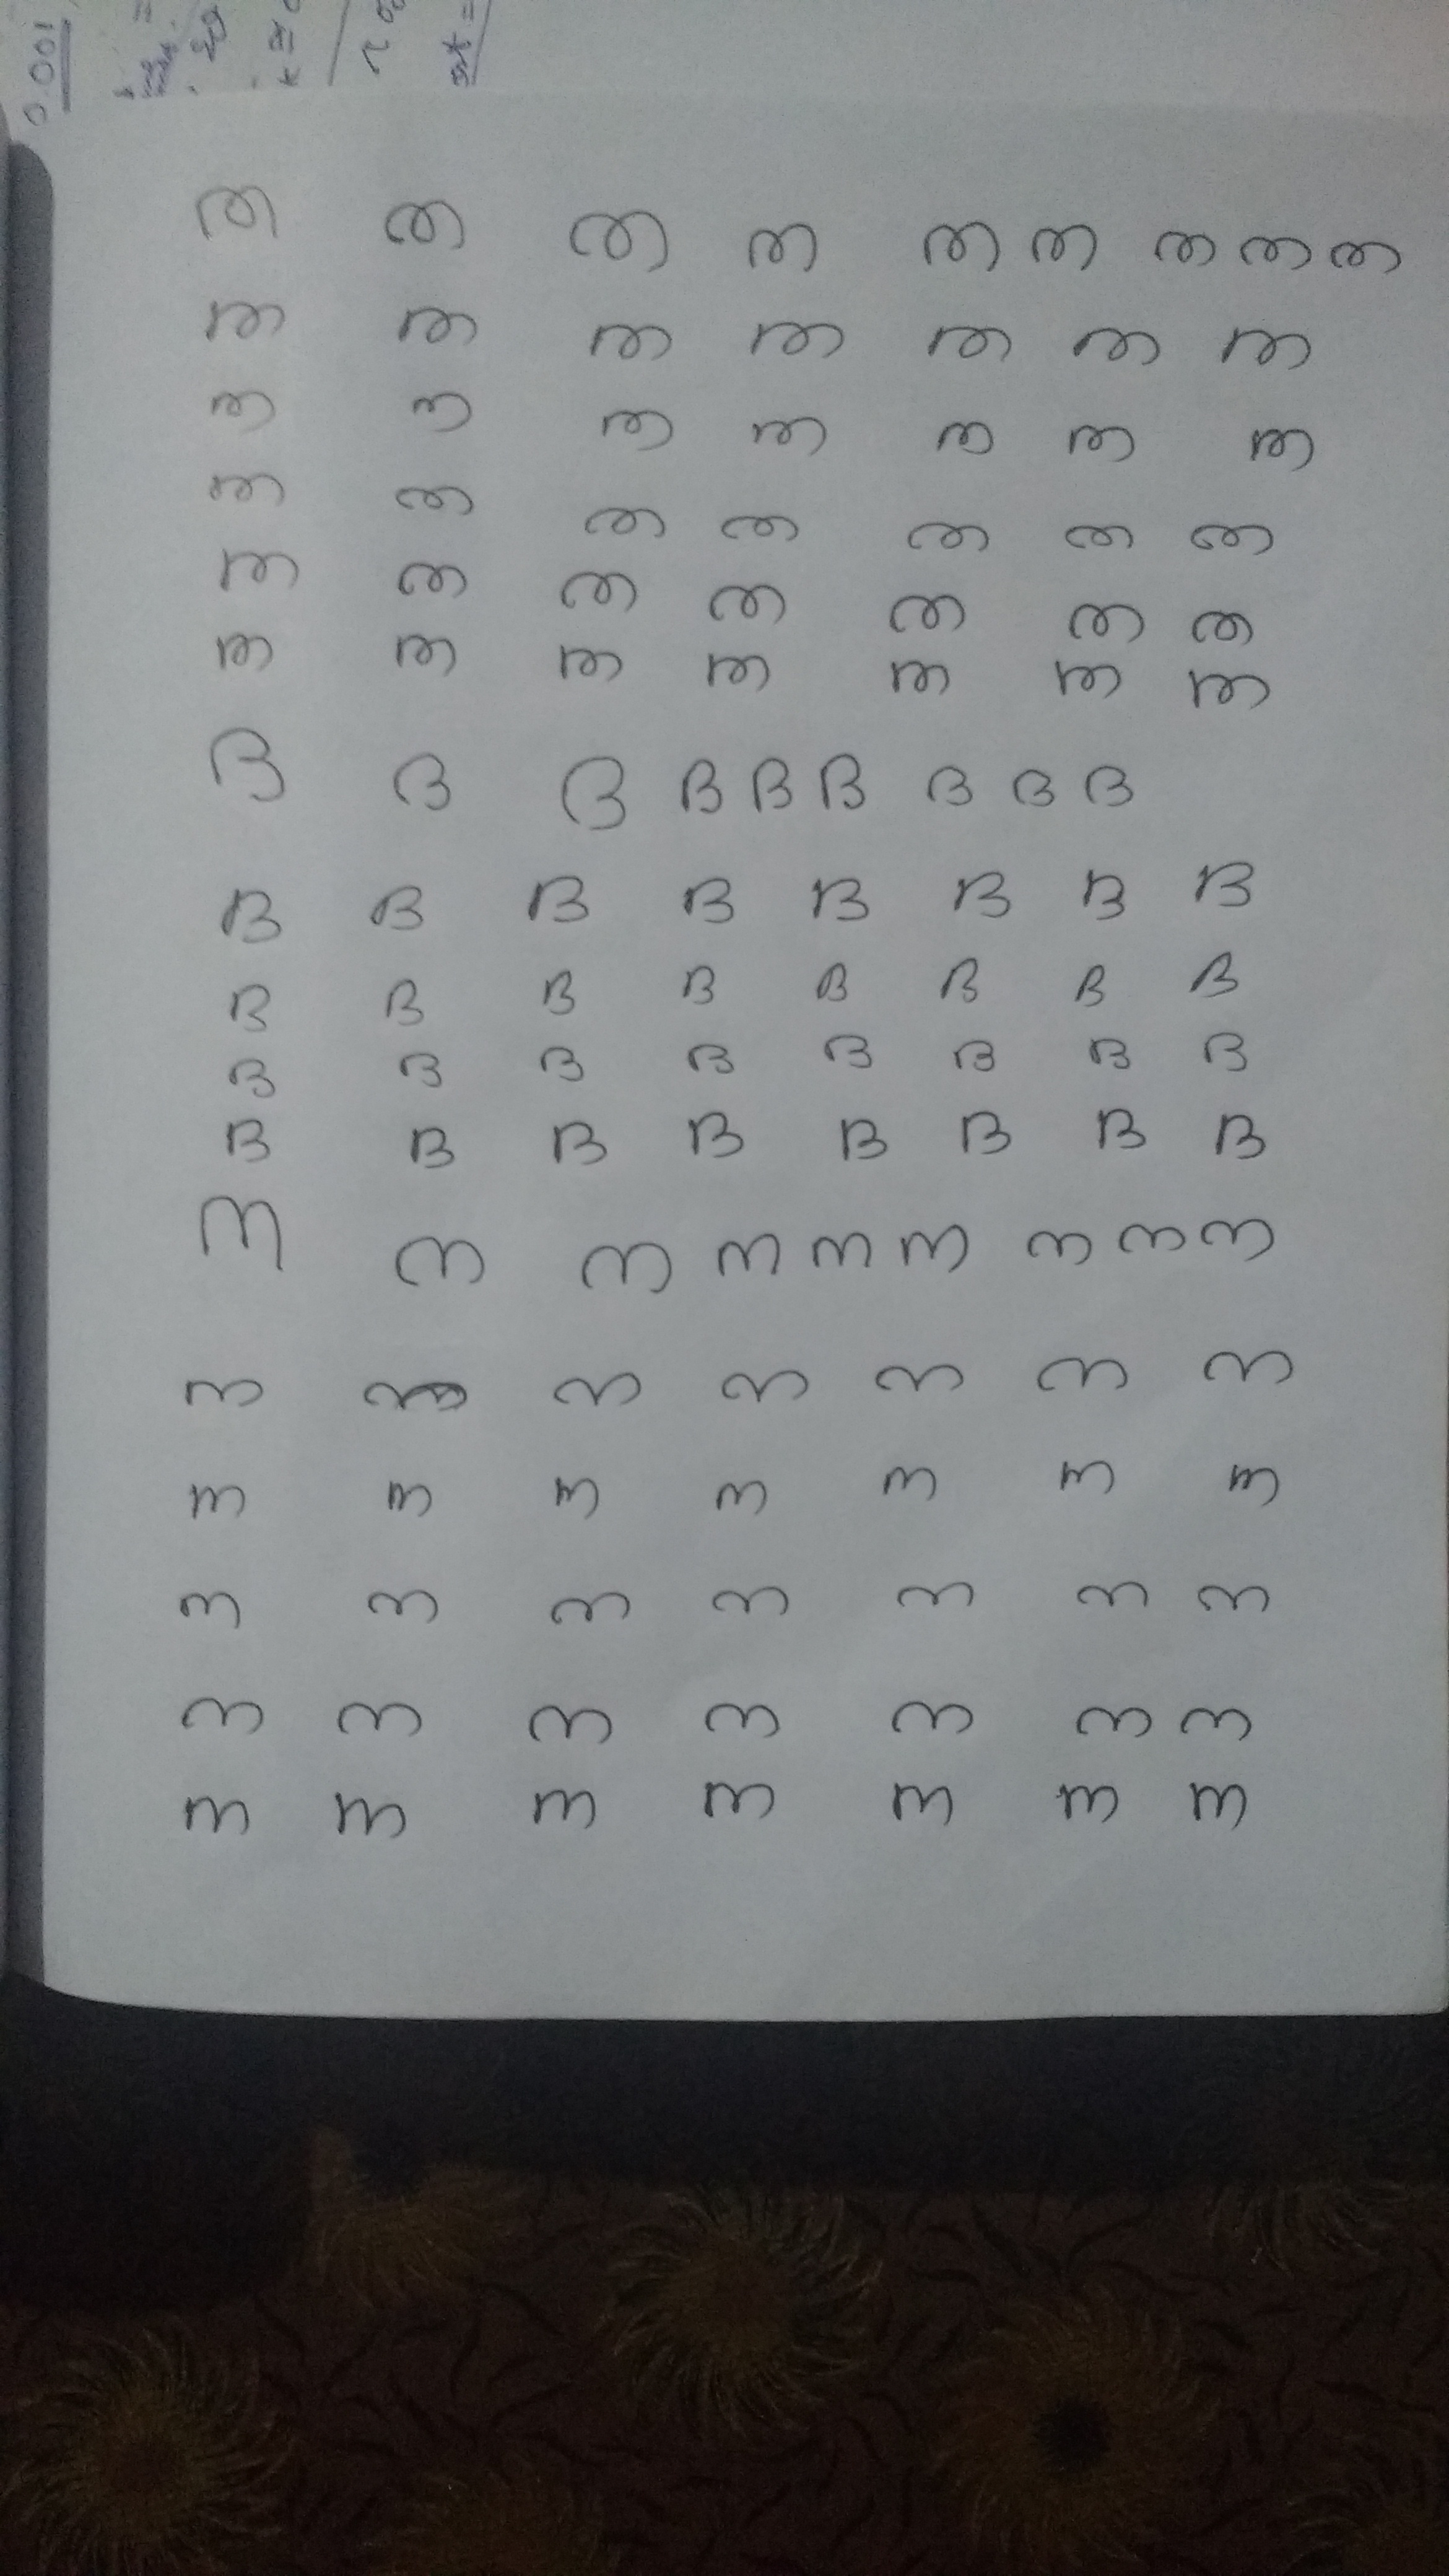 ത ത ത ത ത ത ത ത ത
ത ത ത ത ത ത ത
ത ത ത ത ത ത ത
ത ത ത ത ത ത ത
ത ത ത ത ത ത ത
ത ത ത ത ത ത ത
ദ ദ ദ ദ ദ ദ ദ ദ ദ
ദ ദ ദ ദ ദ ദ ദ ദ
ദ ദ ദ ദ ദ ദ ദ ദ
ദ ദ ദ ദ ദ ദ ദ ദ
ദ ദ ദ ദ ദ ദ ദ ദ
ന ന ന ന ന ന ന ന ന
ന ന ന ന ന ന
ന ന ന ന ന ന ന
ന ന ന ന ന ന ന
ന ന ന ന ന ന ന
ന ന ന ന ന ന ന